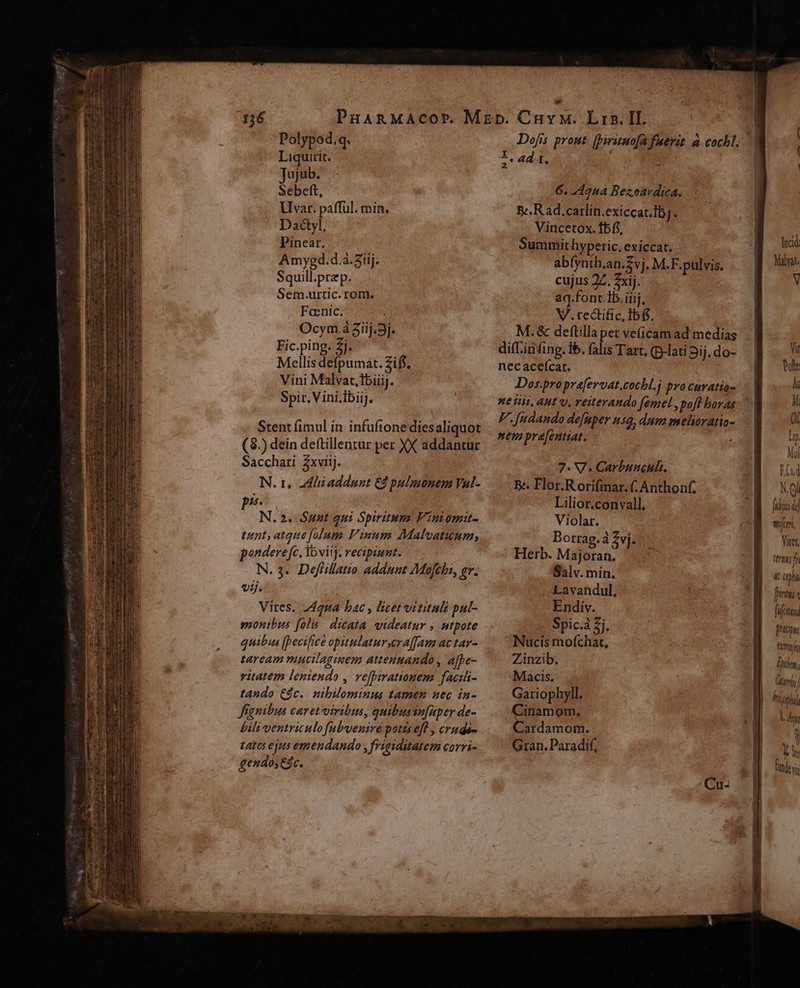 136 PHARMACOP. MED. CHYM. LIB. II.
Polypod.q.
Liquirit.
Jujub.
Sebest,
Uvar. passul. min.
Dactyl,
Pinear.
Amygd.d.à.ʒiij.
Squill.præp.
Sem.urtic. rom.
Fœnic.
Ocym.à ʒiij.℈j.
Fic.ping. ℥j.
Mellis despumat. ℥iß,
Vini Malvat.℔iiij.
Spir. Vini.℔iij.
Stent simul in infusione dies aliquot
(8.) dein destillentur per XX addantur
Sacchari ℥xviij.
N. 1. Alii addunt & pulmonem Vul-
pis.
N. 2. Sunt qui Spiritum Vini omit-
tunt, atque solum Vinum Malvaticum,
pondere sc. ℔viij. recipiunt.
N. 3. Destillatio addunt Moschi, gr.
vij.
Vires. Aqua hac, licet vitituli pul-
monibus solis dicata videatur, utpote
quibus specificè opitulatur, crassam ac tar-
taream mucilaginem attenuando, aspe-
ritatem leniendo, respirationem facili-
tando &c. nihilominus tamen nec in-
signibus caret viribus, quibus insuper de-
bili ventriculo subvenire potis est, crudi-
tates ejus emendando, frigiditatem corri-
gendo, &c.
Dosis prout spirituosa fuerit à cochl.
½. ad 1.
6. Aqua Bezoardica.
℞. Rad. carlin. exiccat. ℔j.
Vincetox. ℔ß,
Summit hyperic, exiccat.
absynth. an. ℥vj. M.F. pulvis.
cujus ℥xij.
aq. font. ℔.iiij,
V. rectific, ℔ß.
M. & destilla per vesicam ad medias
diss. in sing. ℔. salis Tart. lati ℈ij, do-
nec acescat.
Dos. pro præservat, cochl. j pro curatio-
ne iiii, aut v. reiterando semel, post horas
V. sudando desuper usq, dum melioratio-
nem præsentiat.
7. V. Carbunculi.
℞. Flor. Rorismar. s. Anthons.
Lilior. convall,
Violar.
Borrag. à ℥vj.
Herb. Majoran.
Salv. min.
Lavandul,
Endiv.
Spic. à ℥j.
Nucis moschat,
Zinzib.
Macis.
Gariophyll.
Cinamom.
Cardamom.
Gran. Paradis,
Cu-